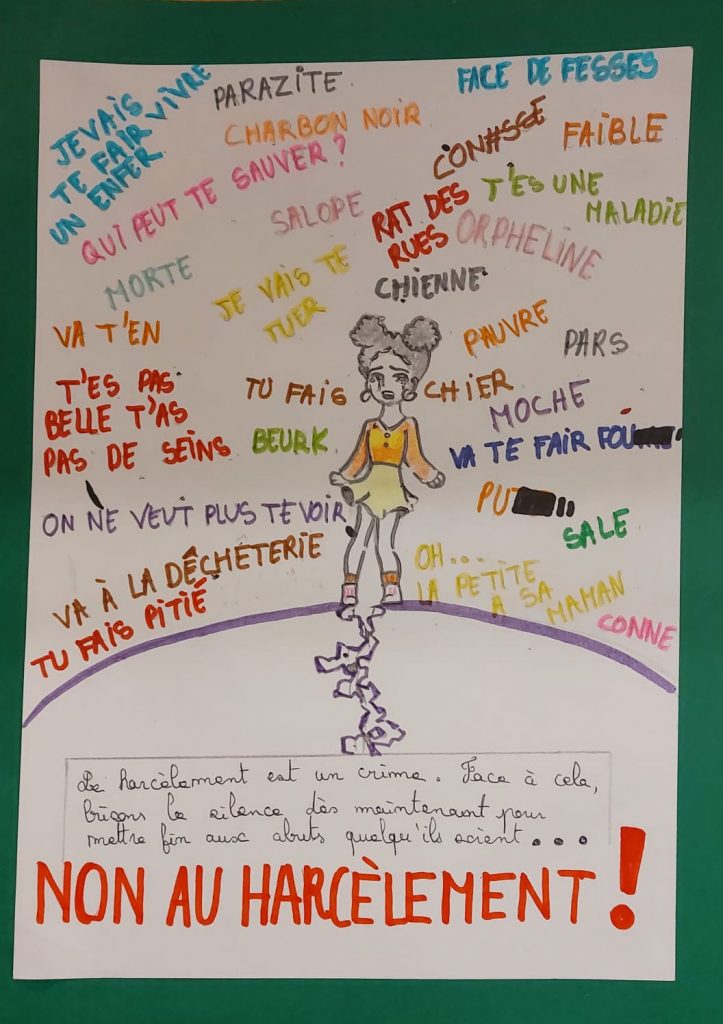 JE VAIS
TE FAIR VIVRE
UN ENFER
PARAZITE
FACE DE FESSES
CHARBON NOIR
CON#SSE
FAIBLE
QUI PEUT TE SAUVER ?
SALOPE
RAT DES
RUES
T'ES UNE
MALADIE
ORPHELINE
MORTE
JE VAIS TE
TUER
CHIENNE
VA T'EN
PAUVRE
PARS
T'ES PAS
BELLE T'AS
PAS DE SEINS
TU FAIS CHIER
MOCHE
BEURK
VA TE FAIR FOU
PU
ON NE VEUT PLUS TE VOIR
SALE
VA À LA DÊCHÉTERIE
OH...
LA PETITE
A SA
MAMAN
TU FAIS PITIÉ
CONNE
Le harcèlement est un crime. Face à cela,
brisons le silence dès maintenant pour
mettre fin aux abuts quelqu'ils soient...
NON AU HARCÈLEMENT !